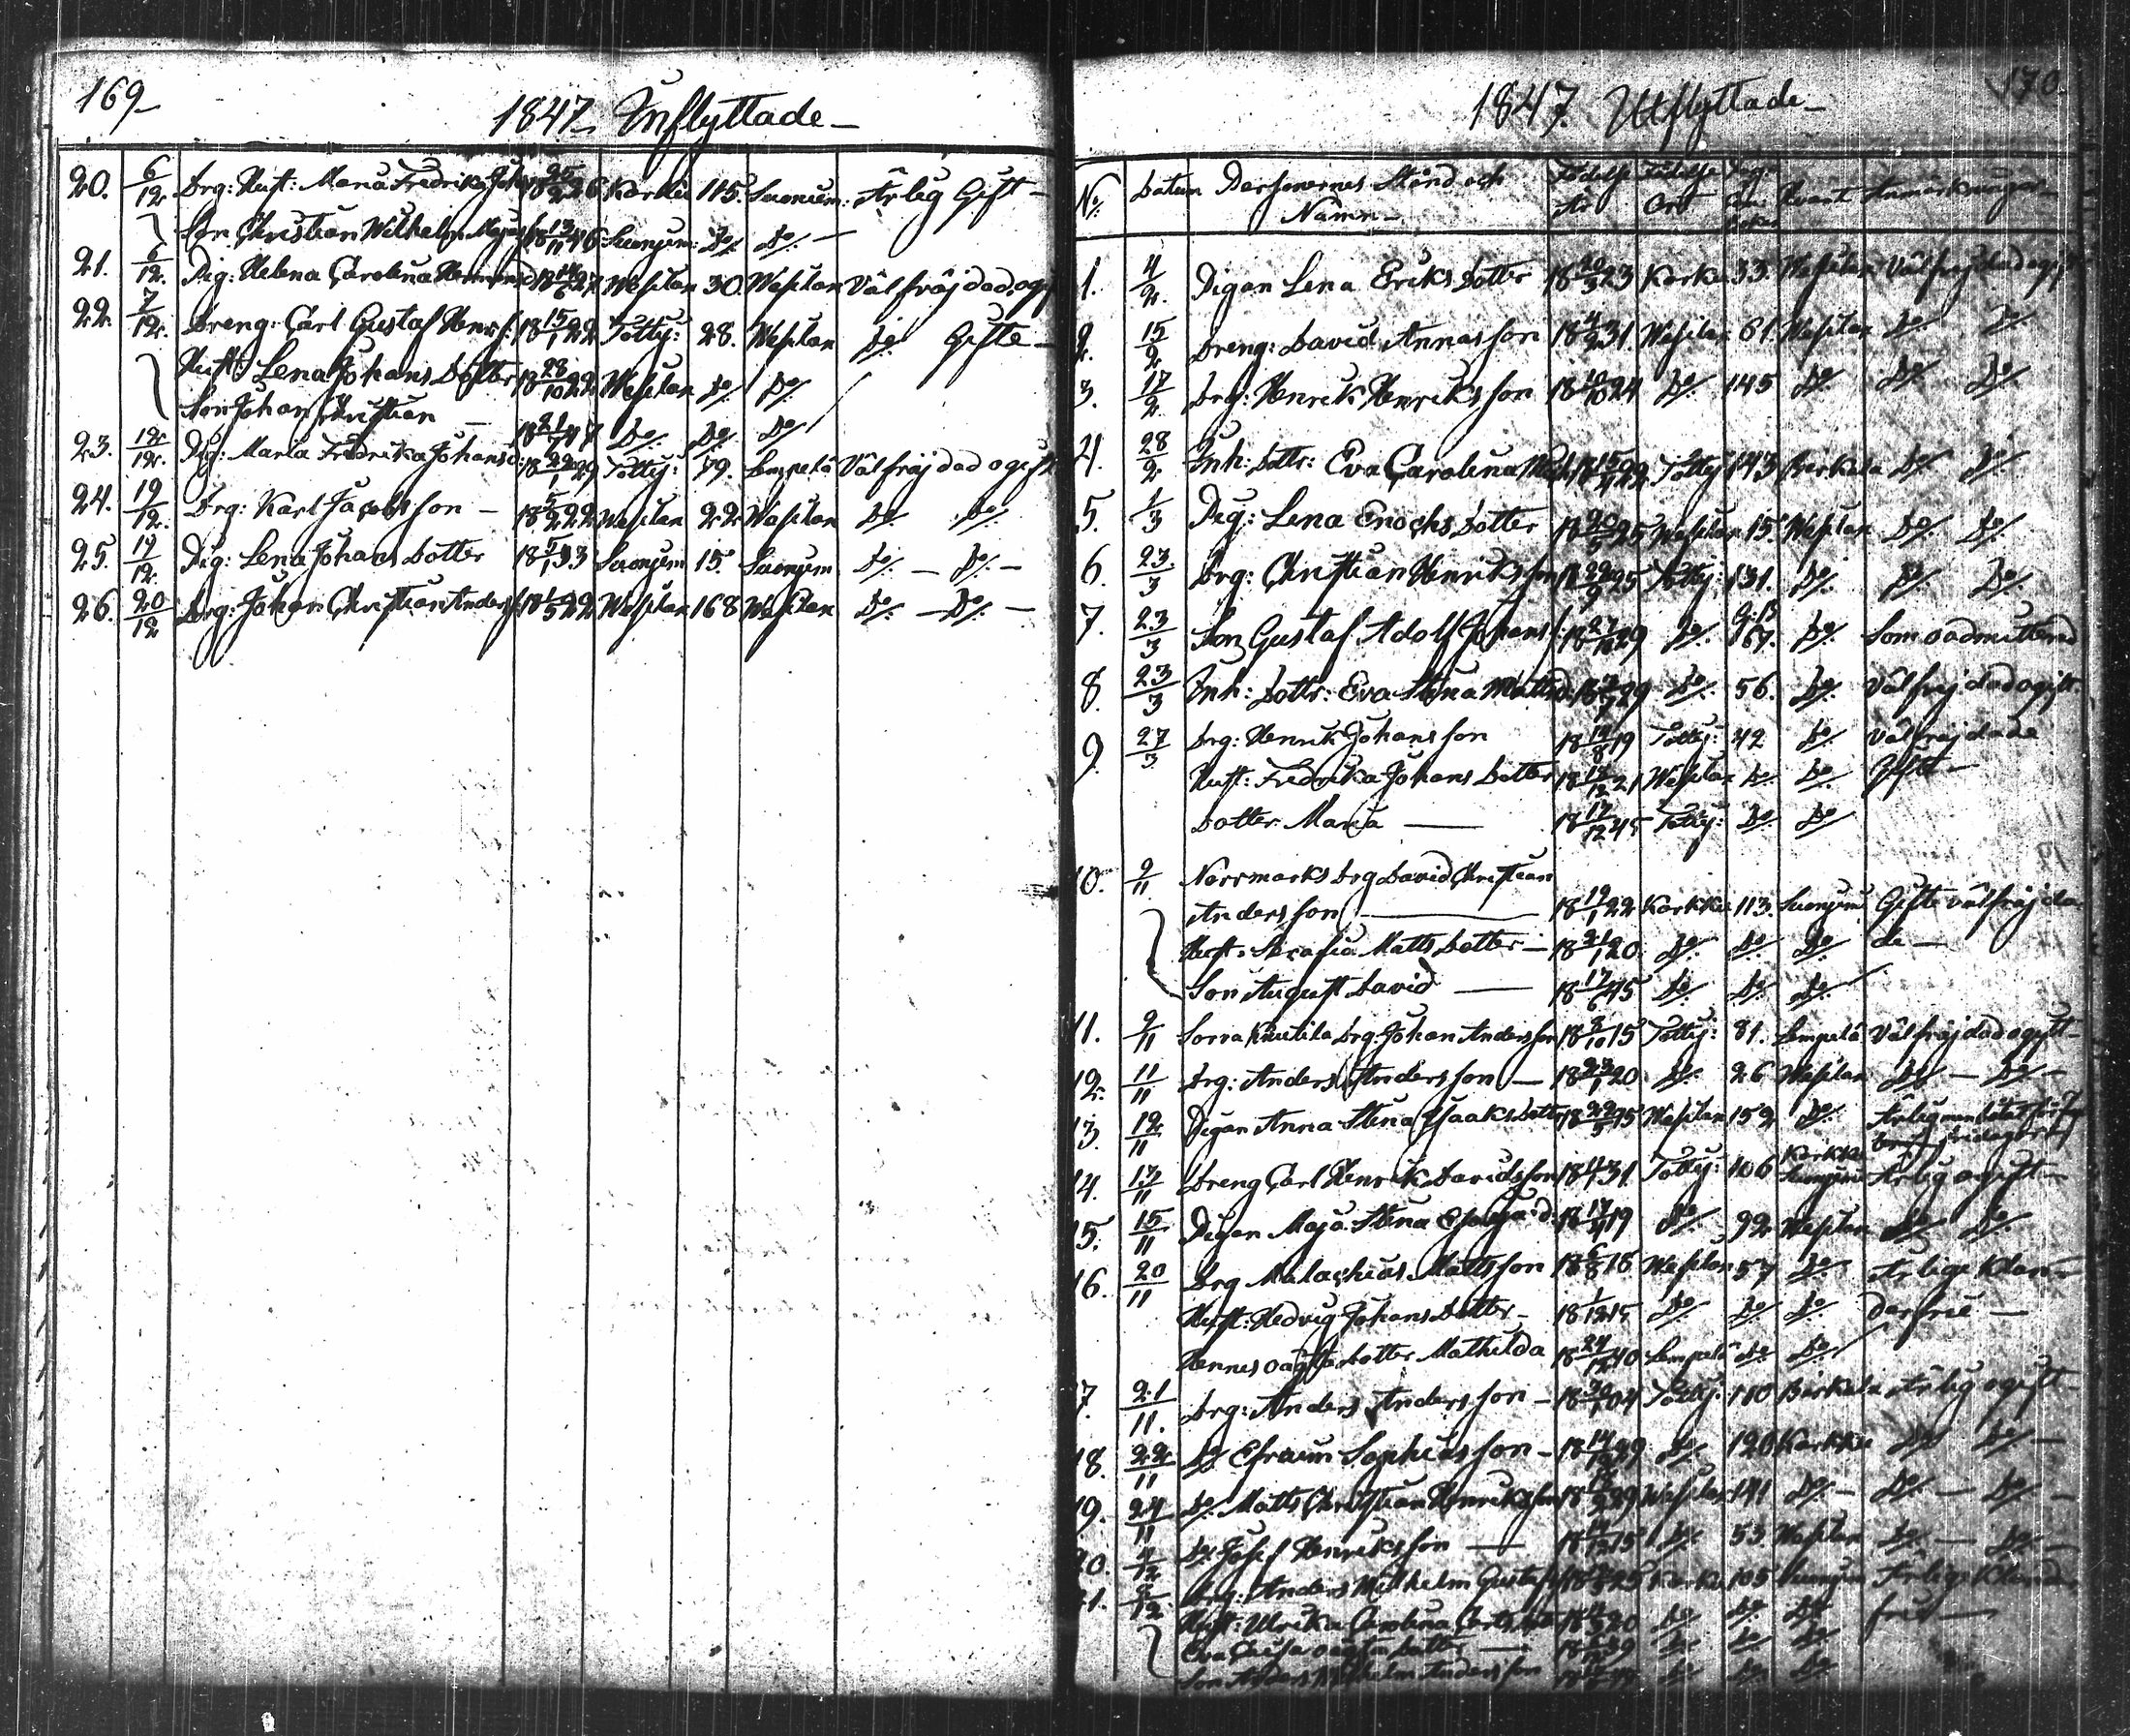 169
1847 Inflyttade
20. 6/12 Drg: Hust: Maria Fredrika 18 25/2 26 Karkku 115. Suonium: Ärlig Gift
Son Christian Wilhelm 18 13/11 46 Suonium: Do Do
21. 6/12. Pig: Helena Carolina 18 14/6 27 Wesilax 30. Wesilax Välfräjdad, ogift
22. 7/12. Dreng: Carl Gustaf Henr: 18 15/1 22 Tottij: 28. Wesilax Do Gifte
Hust: Lena Johans Dotter 18 28/10 22 Wesilax Do Do
Son Johan Christian 18 21/7 47 Do. Do. Do
23. 12/12. Pig: Maria Fredrika Johansd: 18 22/1 29 Tottij: 79. Lempelä Välfräjdad ogift
24. 19/12. Drg: Karl Jacobsson 18 5/2 22 Wesilax 22 Wesilax Do Do
25. 19/12. Pig: Lena Johans Dotter 18 5/1 33 Suonium 15. Suonium Do Do
26. 20/12 Drg: Johan Christian Anders 18 1/5 22 Wesilax 168 Wesilax Do Do
170
1847. Utflyttade
No Datum Personernes Stånd och Namn Födelse År Födelse Ort Pag: Hvart Anmärkningar
1. 4/2. Pigan Lena Eriks Dotter 18 20/3 23 Karku 33. Wesilax Välfrejdad ogift
2. 15/2 Dreng: David Annasson 18 4/2 31. Wesilax 61. Wesilax Do Do
3. 17/2. Drg: Henrik Henriksson 24 Do. 145 Do Do Do
4. 28/2 Inh: Dottr: Eva Carolina 18 15/4 22 Tottij 143 Berkala Do Do
5. 1/3 Pig: Lena Enochs Dotter 18 20/5 25 Wesilax 15. Wesilax Do Do
6. 23/3 Drg: Christian Henriksson 18 29/9 25 Tottij: 131. Do Do Do
7. 23/3 Son Gustaf Adolf Johans 18 27/10 29 Do. 167. Do Som oadmitterad
8. 23/3 Inh: Dottr: Eva Stina Mattsd: 29 Do. 56. Do Välfrejdad ogift.
9. 27/3 Drg: Henrik Johansson 18 19/8 19 Tottij: 42 Do Välfräjdade
Hust: Fredrika Johans Dotter 18 14/12 21 Wesilax Do. Do Gifte
Dotter Maria 18 17/12 45 Tottij: Do Do
10. 9/11 Norrmarks Drg David Christian
Andersson 18 19/1 22 Karkku 113. Suonium Gifte välfräjda
Hust: Serafia Matts Dotter 18 21/1 20 Do. Do Do de
Son August David 18 17/6 45 Do Do Do
11. 9/11 Sorra Knutila Drg: Johan Andersson 18 2/10 15 Tottij: 81. Lempelä Välfräjdad ogift
12. 11/11 Drg: Anders Andersson 18 23/1 20 Do 26 Wesilax Do Do
13. 12/11 Pigan Anna Stina Isaaks Dotter 18 22/5 15 Wesilax 152 Do. Ärlig men
14. 13/11 Dreng Carl Henrik Davidsson 31. Tottij: 106 Karkku Suonium Ärlig ogift
15. 15/11 Pigan Maja Stina 18 17/4 19 Do. 92 Wesilax Do Do
16. 20/11 Drg Malachias Mattsson 18 6/8 18 Wesilax 57 Do Ärlige Klan
Hust: Hedvig Johans Dotter 18 1/12 15 Do Do Do derfrie
Hennes oägta Dotter Mathilda 18 24/12 40 Lempelä Do Do
17. 21/11. Drg: Anders Andersson 04 Tottij: 110 Birkala Ärlig ogift
18. 22/11 Do Efraim Sophiasson 29 Do. 120 Karkku Do Do
19. 24/11 Do: Matts Christian Henriksson 29 Wesilax 141 Do Do Do
20. 4/12 Do Josef Henriksson 15 Do 53. Wesilax Do Do
21. 6/12 Drg: Anders Wilhelm Gustafs 25 Karku 105 Suonium Ärlige Klander
Hust: Ulrika Carolina Carls Dotter 20 Do Do Do frie
Eva oägta Dotter 39 Do Do Do
Son Anders Wilhelm Andersson Do Do Do